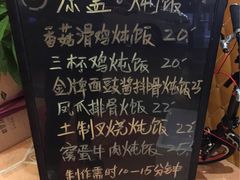 煲盖·炖饭
香菇滑鸡炖饭 20
三杯鸡炖饭 20
金牌面豉酱排骨炖饭 25
凤爪排骨饭 22
土制叉烧炖饭 22
窝蛋牛肉炖饭 25
制作需时10—15分钟